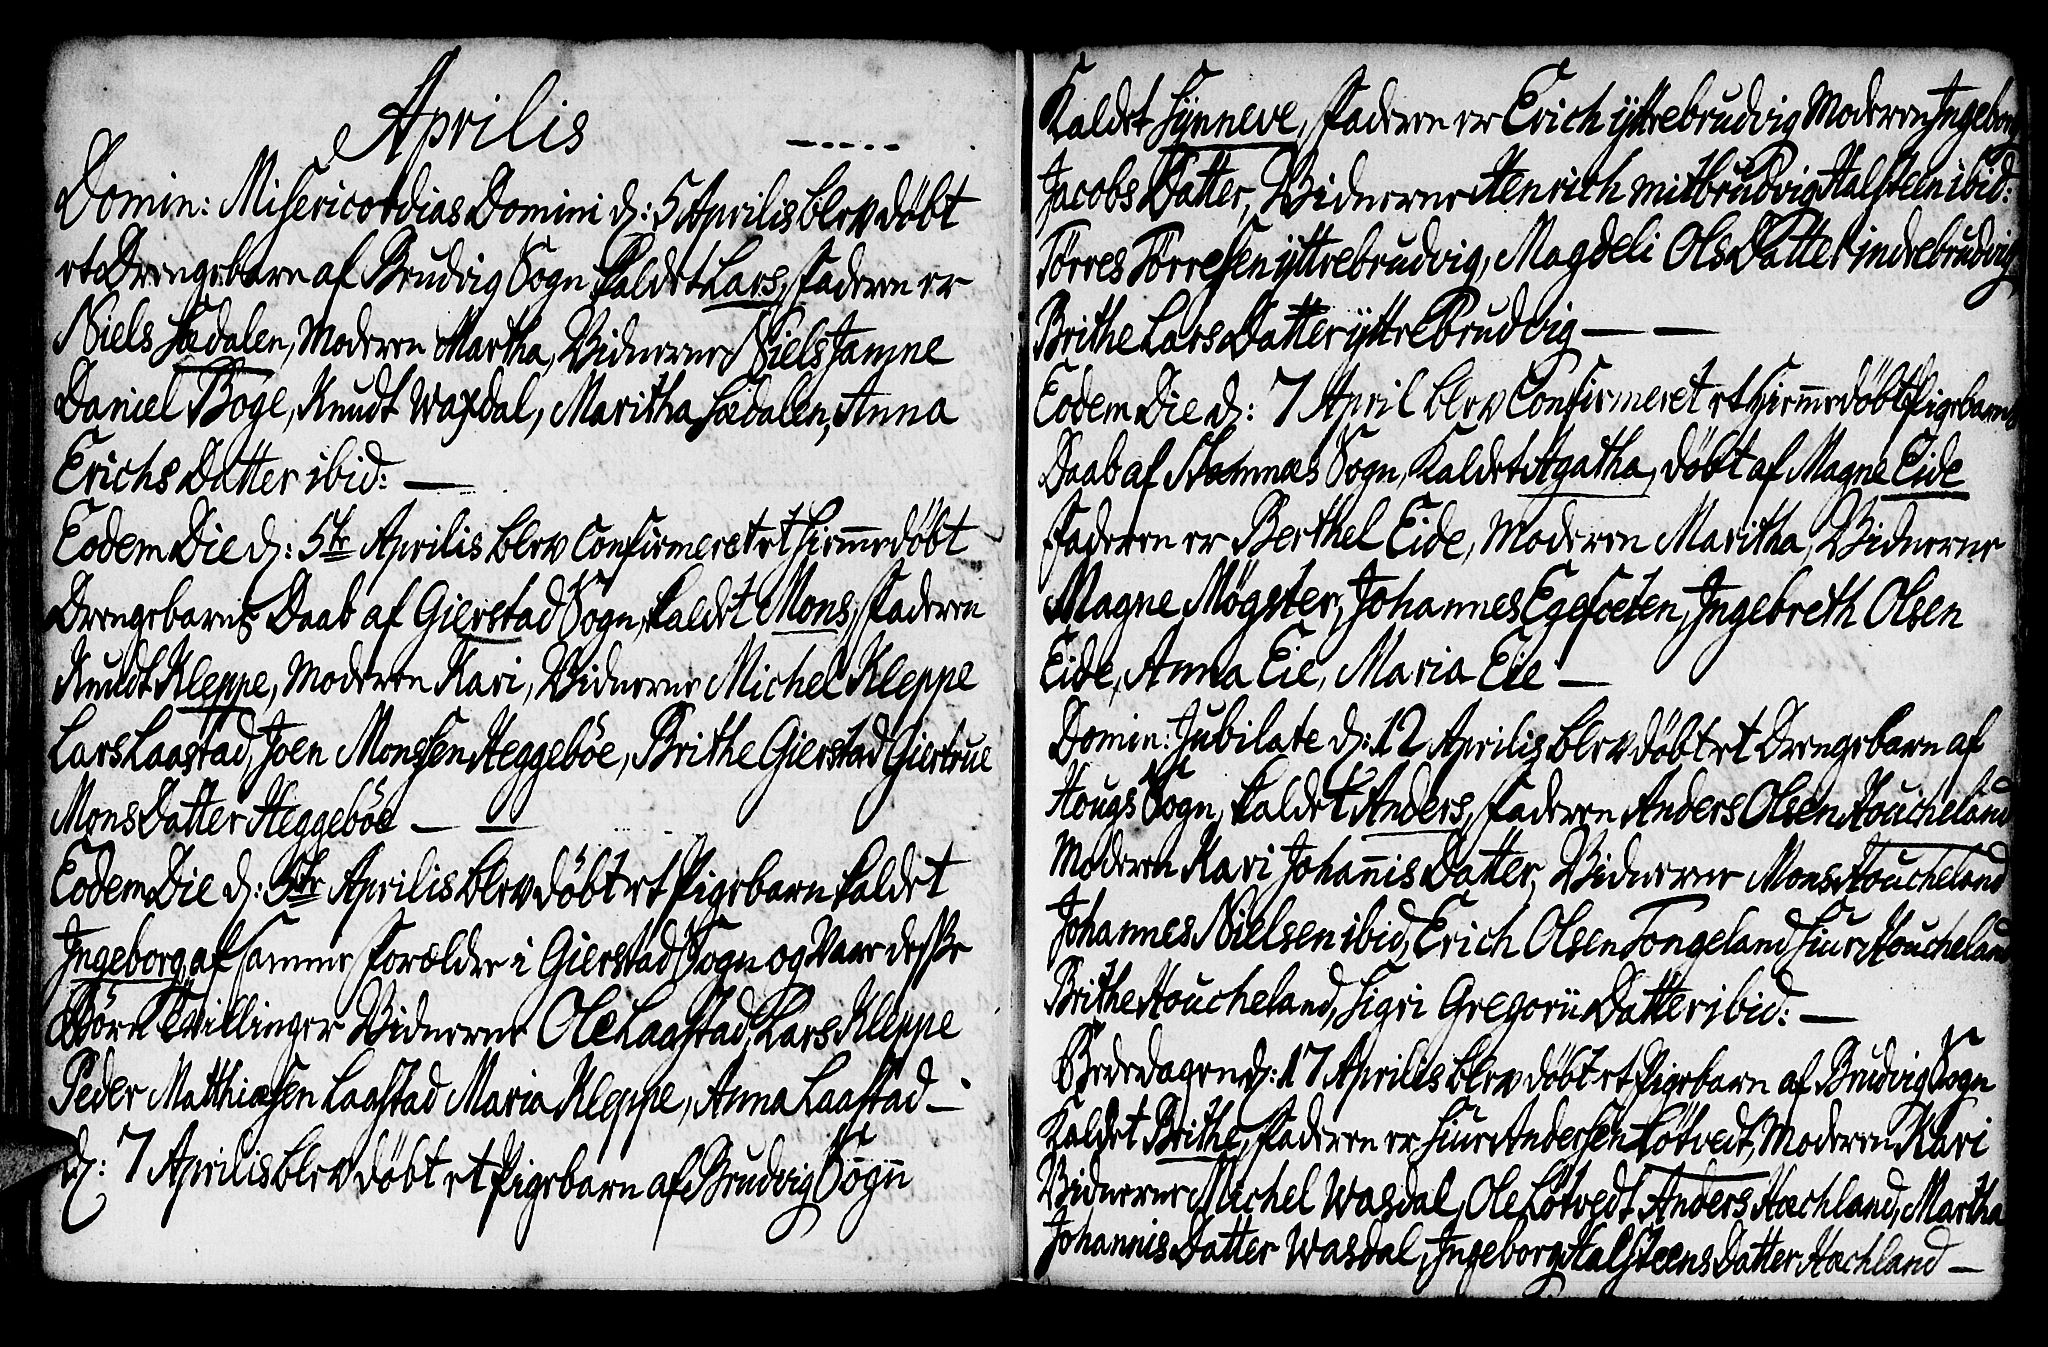 Aprilis
Domin: Misericordias Domini d: 5 Aprilis blev döbt
et Drengebarn af Brudvig Sogn kaldet Lars, Faderen er
Niels Hædalen, Moderen Martha, Vidnerne Niels Jamne
Daniel Boge, Knudt Waxdal, Maritha Hædalen, Anna
Erichs Datter ibid: —
Eodem Die d: 5te Aprilis blev Confirmeret et hiemmedöbt
Drengebarns Daab af Gierstad Sogn, kaldet Mons, Faderen
Knudt Kleppe, Moderen Kari, Vidnerne Michel Kleppe
Lars Laastad, Joen Monssen Heggeböe, Brithe Gierstad Giertrue
Mons Datter Heggeböe — —
Eodem Die d: 5te Aprilis blev döbt et Pigebarn kaldet
Ingeborg, af samme Forældre i Gierstad Sogn og vare disse
Börn Tvillinger Vidnerne Ole Laastad, Lars Kleppe
Peder Matthiasen Laastad Maria Kleppe, Anna Laastad —
d: 7 Aprilis blev döbt et Pigebarn af Brudvig Sogn
Kaldet Synneve, Faderen er Erich yttrebrudvig Moderen Ingeborg
Jacobs Datter, Vidnerne Henrich mitbrudvig Halsteen ibid:
Törres Törresen yttrebrudvig, Magdeli Ols Datter indrebrudvig
Brithe Lars Datter yttrebrudvig — —
Eodem Die d: 7 April blev Confirmeret et hiemmedöbt Pigebarns
Daab af Stamnæs Sogn, kaldet Agatha, döbt af Magne Eide
Faderen er Berthel Eide, Moderen Maritha, Vidnerne
Magne Mögster, Johannes Egesæten, Ingebreth Olsen
Eide, Anna Eie, Maria Eie —
Domin: Jubilate d: 12 Aprilis blev döbt et Drengebarn af
Hougs Sogn, kaldet Anders, Faderen Anders Olsen Houcheland
Moderen Kari Johannis Datter, Vidnerne Mons Houcheland
Johannes Nielsen ibid, Erich Olsen Tongeland Siur Houcheland
Brithe Houcheland, Sigri Gregorii Datter ibid: —
Bededagen d: 17 Aprilis blev döbt et Pigebarn af Brudvig Sogn
Kaldet Brithe, Faderen er Siur Andersen Lötvedt, Moderen Kari
Vidnerne Michel Wasdal, Ole Lötvedt Anders Hachland, Martha
Johannis Datter Wasdal, Ingeborg Halsteens Datter Hachland —